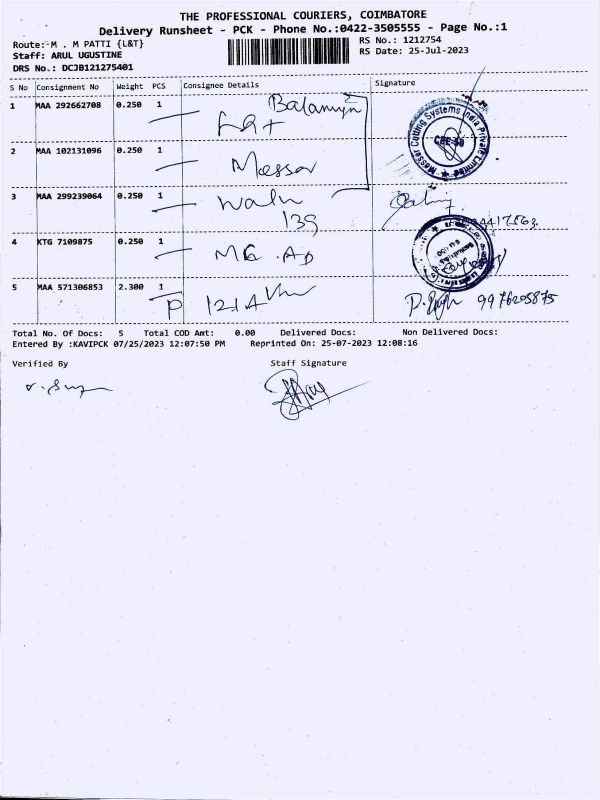 THE PROFESSIONAL COURIERS, COIMBATORE
Delivery Runsheet - PCK - Phone No.:0422-3505555 - Page No.:1
Route:-M . M PATTI {L&T}
RS No.: 1212754
Staff: ARUL UGUSTINE
RS Date: 25-Jul-2023
DRS No.: DCJB121275401
S No Consignment No Weight PCS Consignee Details Signature
1 MAA 292662708 0.250 1 Balamyn
L&T
Messer Cutting Systems India Private Limited
2 MAA 102131096 0.250 1 Messer
3 MAA 299239064 0.250 1
139
4 KTG 7109875 0.250 1 MG .AD
5 MAA 571306853 2.300 1
P 1214 9976205875
Total No. Of Docs: 5 Total COD Amt: 0.00 Delivered Docs: Non Delivered Docs:
Entered By :KAVIPCK 07/25/2023 12:07:50 PM Reprinted On: 25-07-2023 12:08:16
Verified By Staff Signature